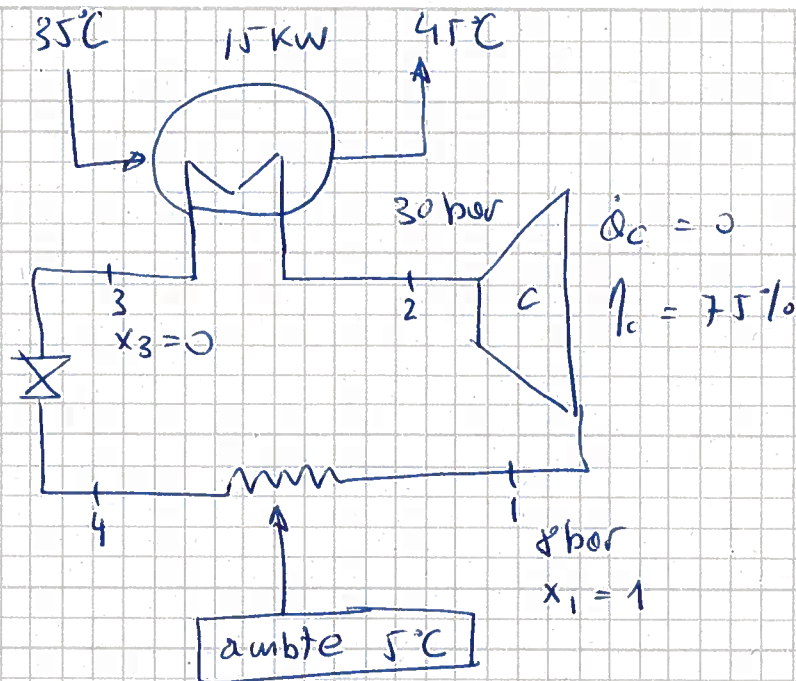 35°C 15 KW 45°C
30 bar
Q̇c = 0
C
ηc = 75%
3
2
x3 = 0
4
1
8 bar
x1 = 1
ambte 5°C